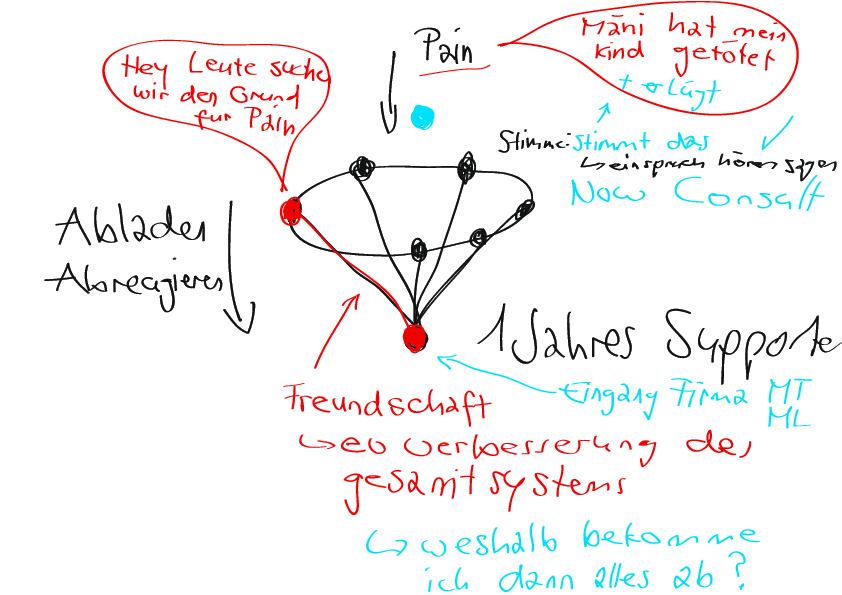 Hey Leute suche
wir den Grund
für Pain
Pain
Mäni hat mein
kind getötet
+ erlügt
Stimme: Stimmt das
↳ einspruch hören sagen
Now Consalt
Abladen
Abreagieren
1 Jahres Supporte
Eingang Firma MT
ML
Freundschaft
↳ ev verbesserung des
gesamtsystems
↳ weshalb bekomme
ich dann alles ab?